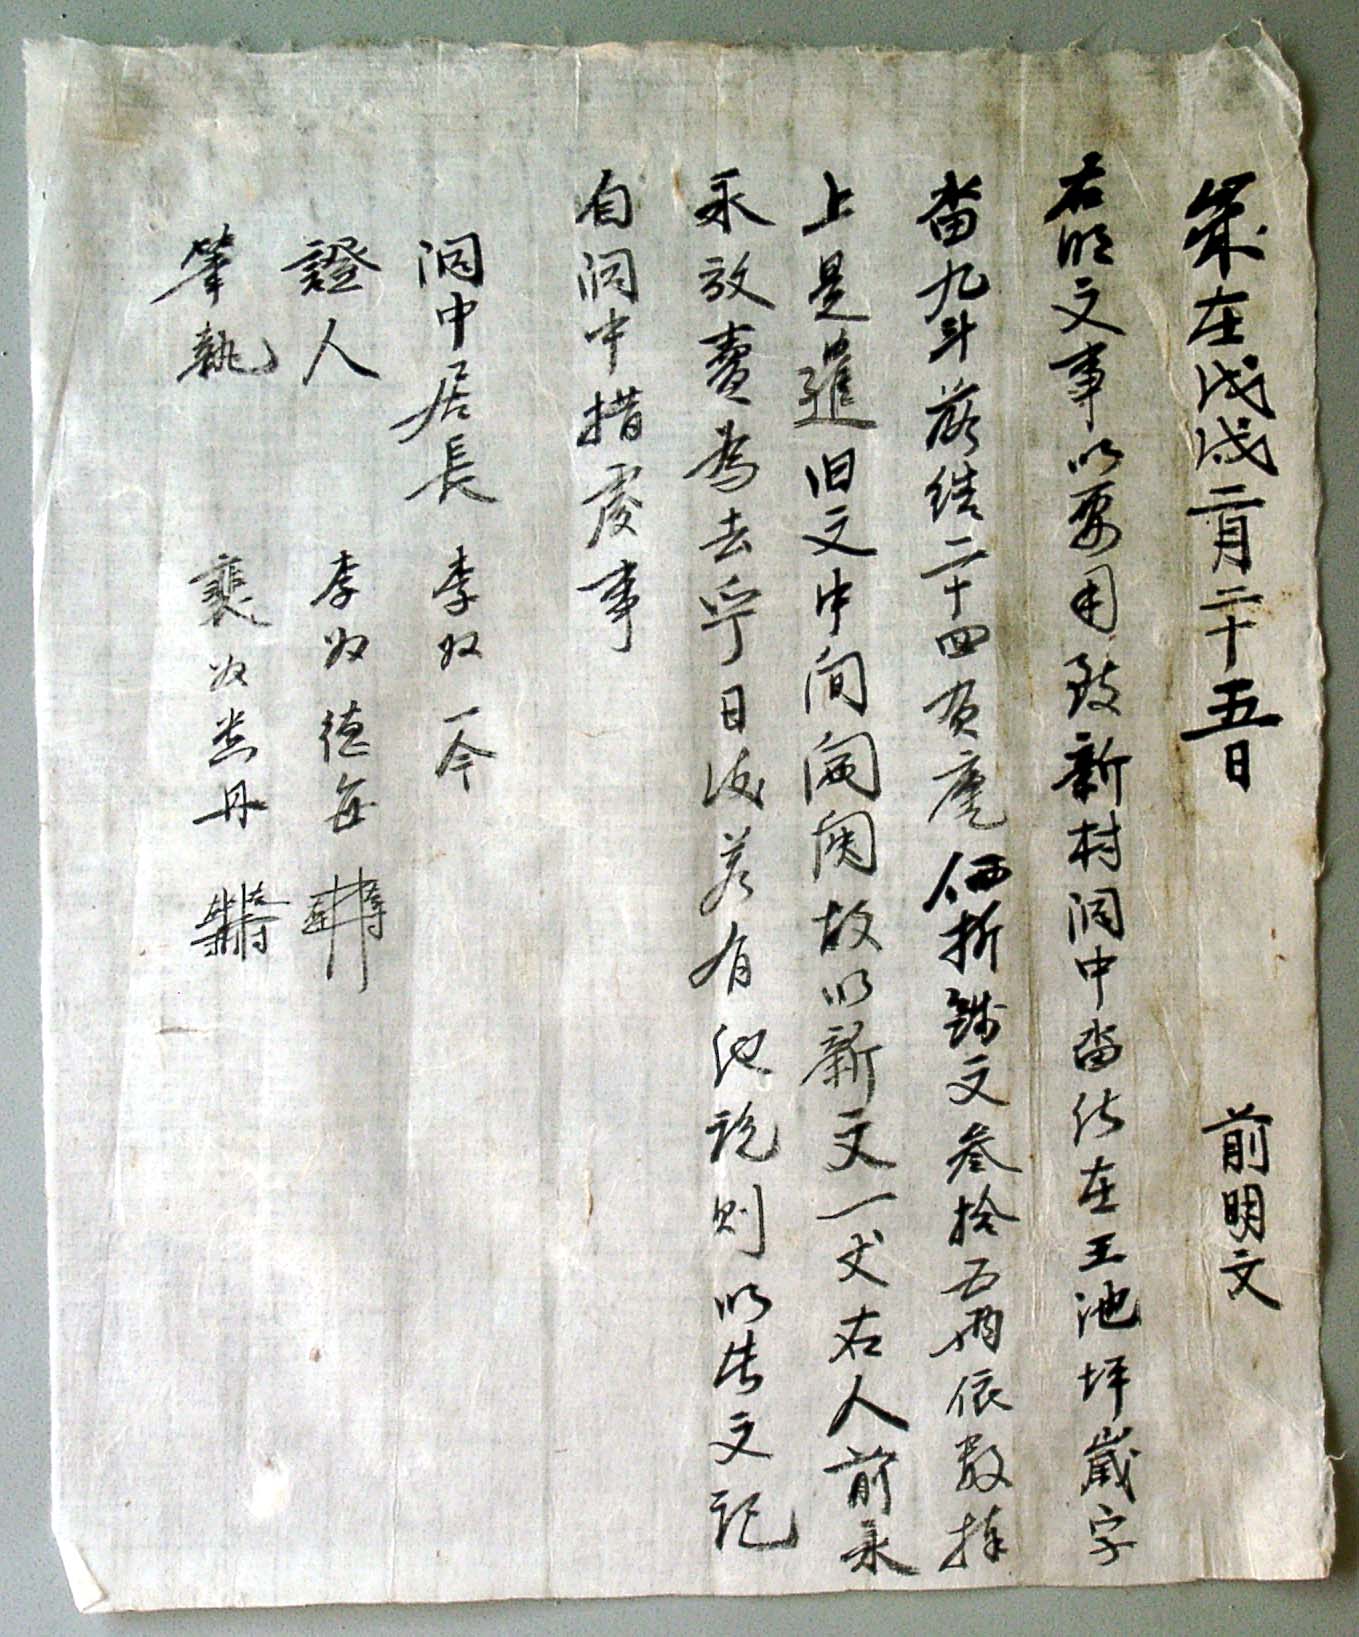 歲在戊戌二月二十五日 前明文
右明文事以要用致新村洞中畓伏在王池坪歲字
畓九斗落結二十四負庫価折錢文叁拾五兩依數捧
上是遣旧文中間閪失故以新文一丈右人前永
永放賣爲去乎日後若有他說則以此文記
自洞中措處事
洞中居長 李奴一今
證人 李奴德每
筆執 裵奴 丹